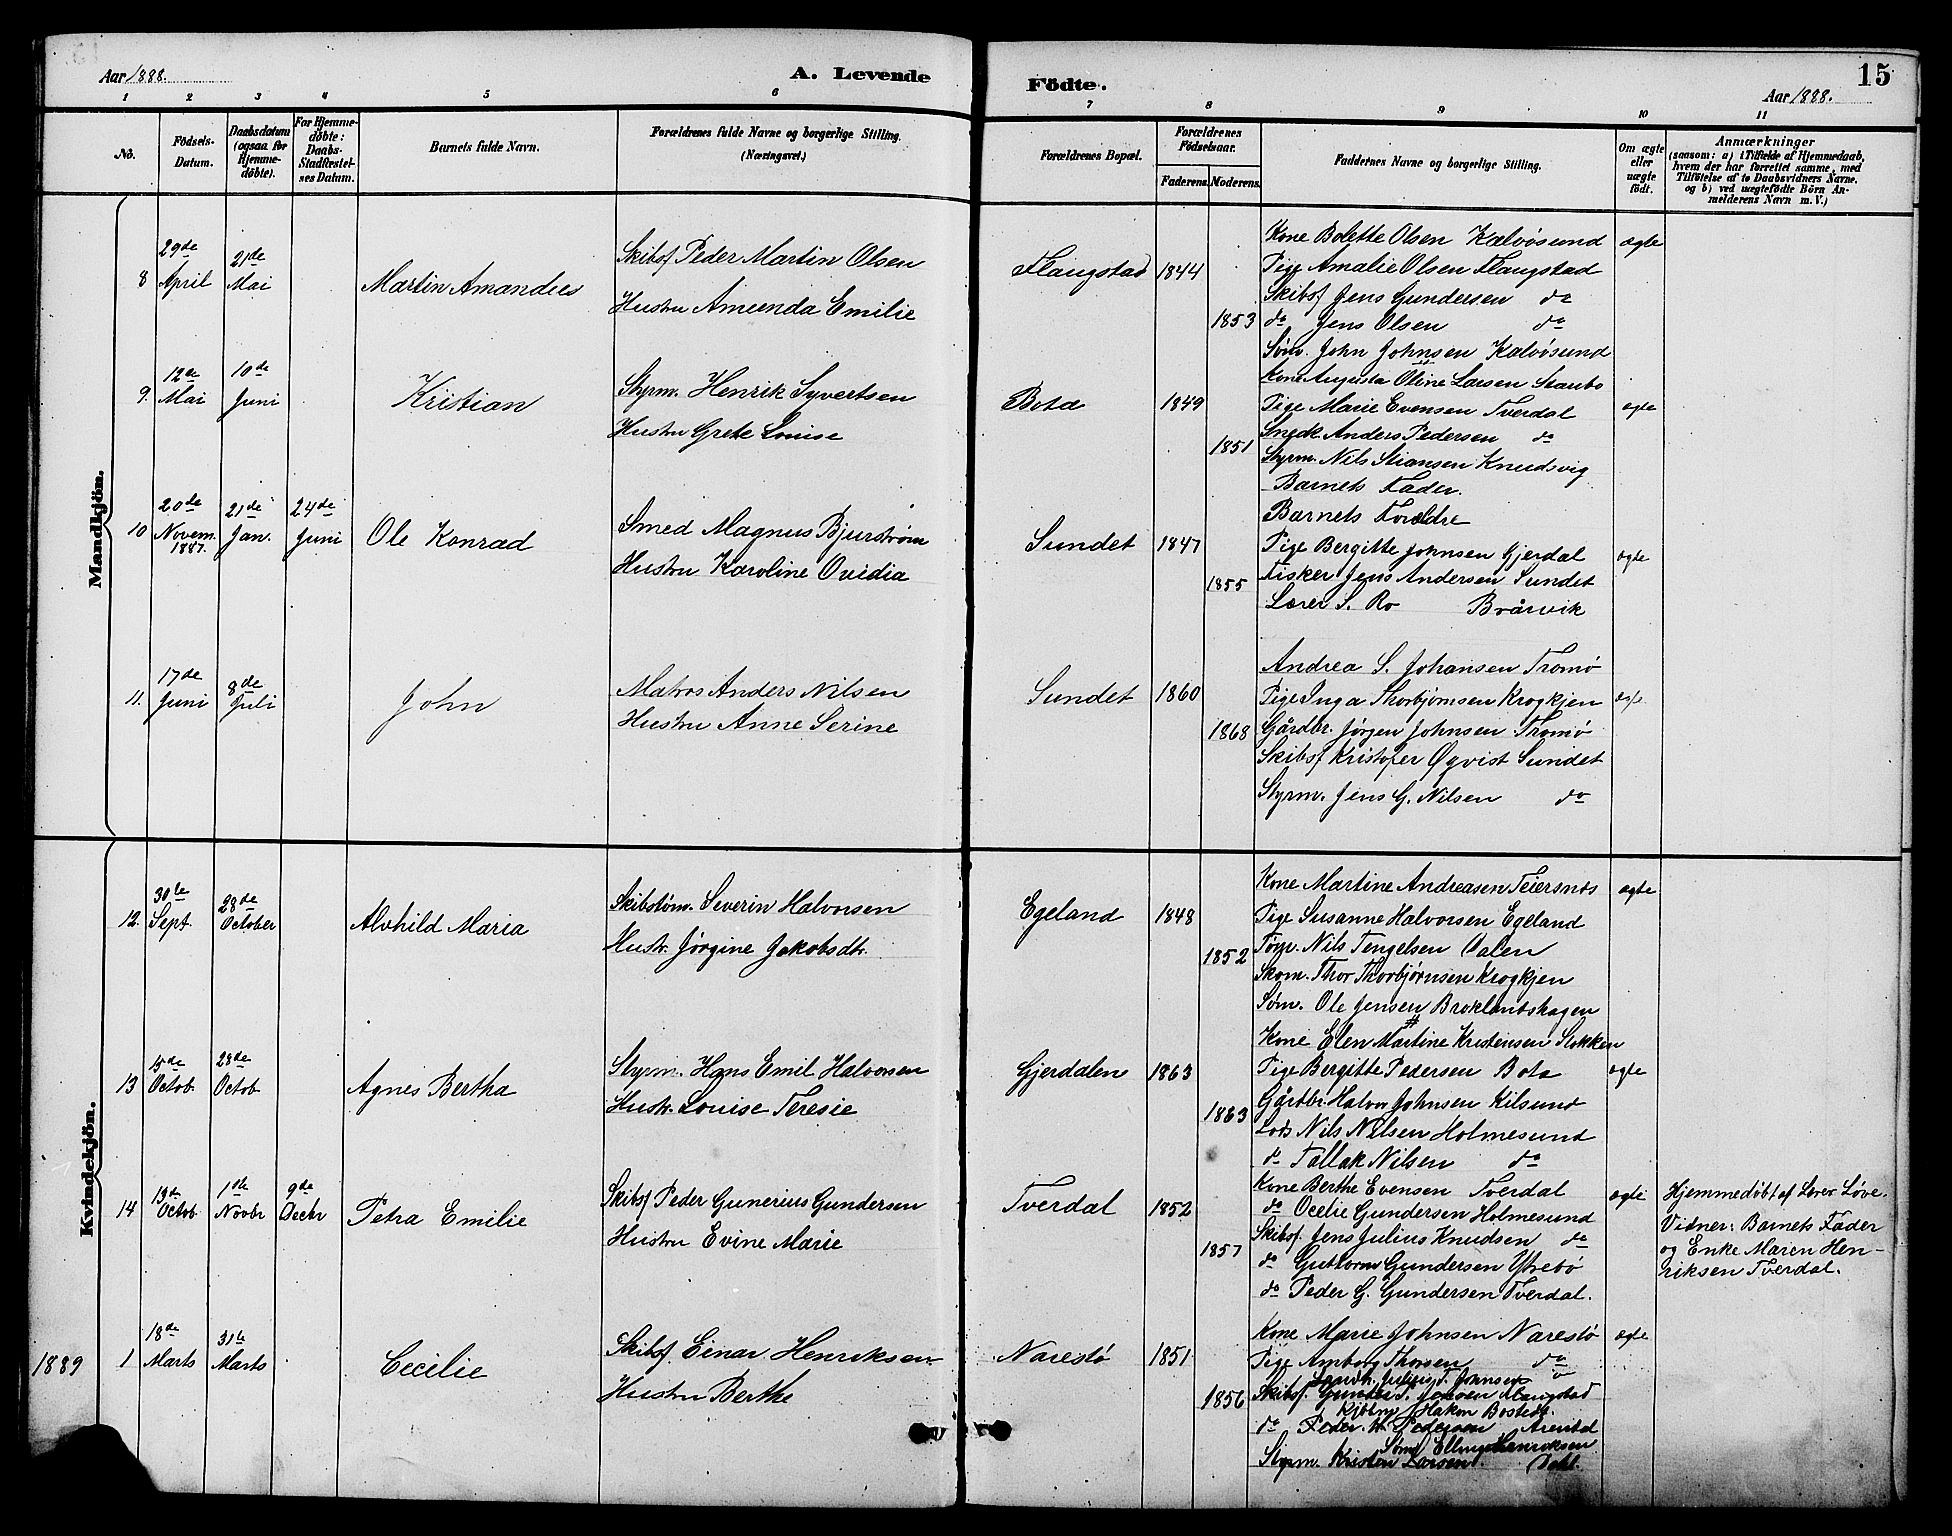 Aar 1888.
A. Levende
Fødte.
15
Aar 1888.
1 2 3 4 5 6 7 8 9 10 11
No.
Födsels-
Datum.
Daabsdatum
(ogsaa for
Hjemme-
döbte).
For Hjemme-
döbte:
Daabs-
Stadfæstel-
ses Datum.
Barnets fulde Navn.
Forældrenes fulde Navne og borgerlige Stilling.
(Næringsvei.)
Forældrenes Bopæl.
Forældrenes
Födselsaar.
Faderens. Moderens.
Faddernes Navne og borgerlige Stilling.
Om ægte
eller
uægte
födt.
Anmærkninger
(saasom: a) i Tilfælde af Hjemmedaab,
hvem der har forrettet samme, med
Tilföielse af to Daabsvidners Navne.
og b) ved uægtefödte Börn An-
melderens Navn m. V.)
Mandkjön.
8
29de
April
21de
Mai
Martin Amandus
Skibsf Peder Martin Olsen
Hustru Amunda Emilie
Flaugstad
1844
1853
Kone Bolette Olsen Kalvøsund
Pige Amalie Olsen Flaugstad
Skibsf Jens Gundersen do
do Jens Olsen do
Søm. John Johnsen Kalvøsund
ægte
9.
12te
Mai
10de
Juni
Kristian
Styrm. Henrik Syvertsen
Hustru Grete Louise
Bota
1849
1851
Kone Augusta Oline Larsen Staubo
Pige Marie Evensen Tverdal
Snedk Anders Pedersen do
Styrm. Nils Stiansen Knudsvig
Barnets Fader.
ægte
10
20de
Novem.
1887.
21de
Jan.
24de
Juni
Ole Konrad
Smed Magnus Bjurstrøm
Hustru Karoline Ovidia
Sundet
1847
1855
Barnets Forældre
Pige Bergitte Johnsen Gjerdal
Fisker Jens Andersen Sundet
Lærer S. Ro Bråsvik
ægte
11.
17de
Juni
8de
Juli
John
Matros Anders Nilsen
Hustru Anne Serine
Sundet
1860
1868
Andrea S. Johansen Tromø
Pige Inga Thorbjørnsen Krogkjen
Gårdbr. Jørgen Johnsen Tromø
Skibsf Kristofer Øqvist Sundet
Styrm. Jens G. Nilsen do
ægte
Kvindekjön.
12.
30te
Sept.
28de
October
Alvhild Maria
Skibstøm. Severin Halvorsen
Hustr. Jørgine Jakobsdtr.
Egeland
1848
1852
Kone Martine Andreasen Teiersnes
Pige Susanne Halvorsen Egeland
Tøm. Nils Tengelsen Dalen
Skom. Thor Thorbjørnsen Krogkjen
Søm. Ole Jensen Broklandshagen
ægte
13
5de
Octob.
28de
Octob
Agnes Bertha
Styrm. Hans Emil Halvorsen
Hustr. Louise Teresie
Gjerdalen
1863
1863
Kone Elen Martine Kristensen Stokken
Pige Bergitte Pedersen Bota
Gårdbr. Halvor Johnsen Kilsund
Lods Nils Nilsen Holmesund
do Tallak Nilsen do
ægte
14
13de
Octob.
1ste
Novbr
9de
Decbr
Petra Emilie
Skibsf Peder Gunerius Gundersen
Hustru Evine Marie
Tverdal
1852
1857
Kone Berthe Evensen Tverdal
do Ocelie Gundersen Holmesund
Skibsf. Jens Julius Knudsen do
do Guttorm Gundersen Ytrebø
do Peder G. Gundersen Tverdal.
ægte
Hjemmedøbt af Lærer Løve.
Vidner: Barnets Fader
og Enke Maren Hen-
riksen Tverdal.
1889
1
18de
Marts
31te
Marts
Cecilie
Skibsf. Einar Henriksen
Hustru Berthe
Narestø
1851
1856
Kone Marie Johnsen Narestø
Pige Amborg Thorsen do
Landh. Julius T. Johnsen
Skibsf. Gunder T. Jensen Flaugstad
Kjøbm Hakon Bostedt.
do Peder W. Pedersen Arendal
Søm Elling Henriksen
Styrm. Kristen Larsen Dahl.
ægte